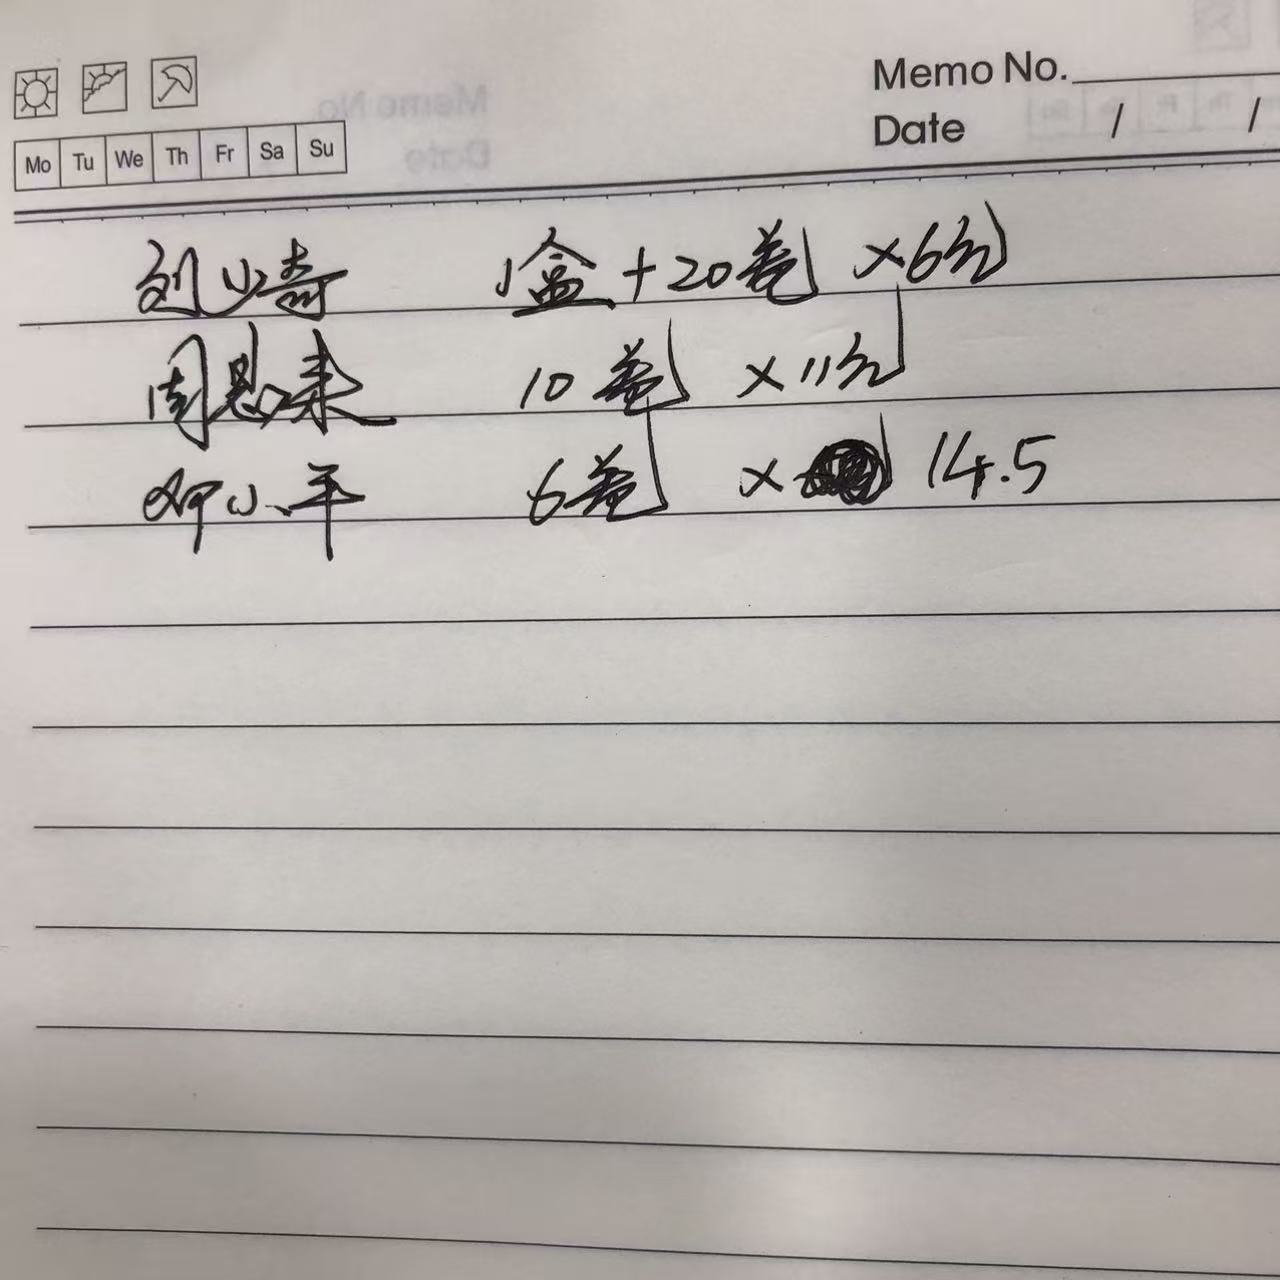 Memo No.
Date / /
Mo Tu We Th Fr Sa Su
刘少奇 1盒+20卷 ×6分
周恩来 10卷 ×11分
邓小平 6卷 × 14.5